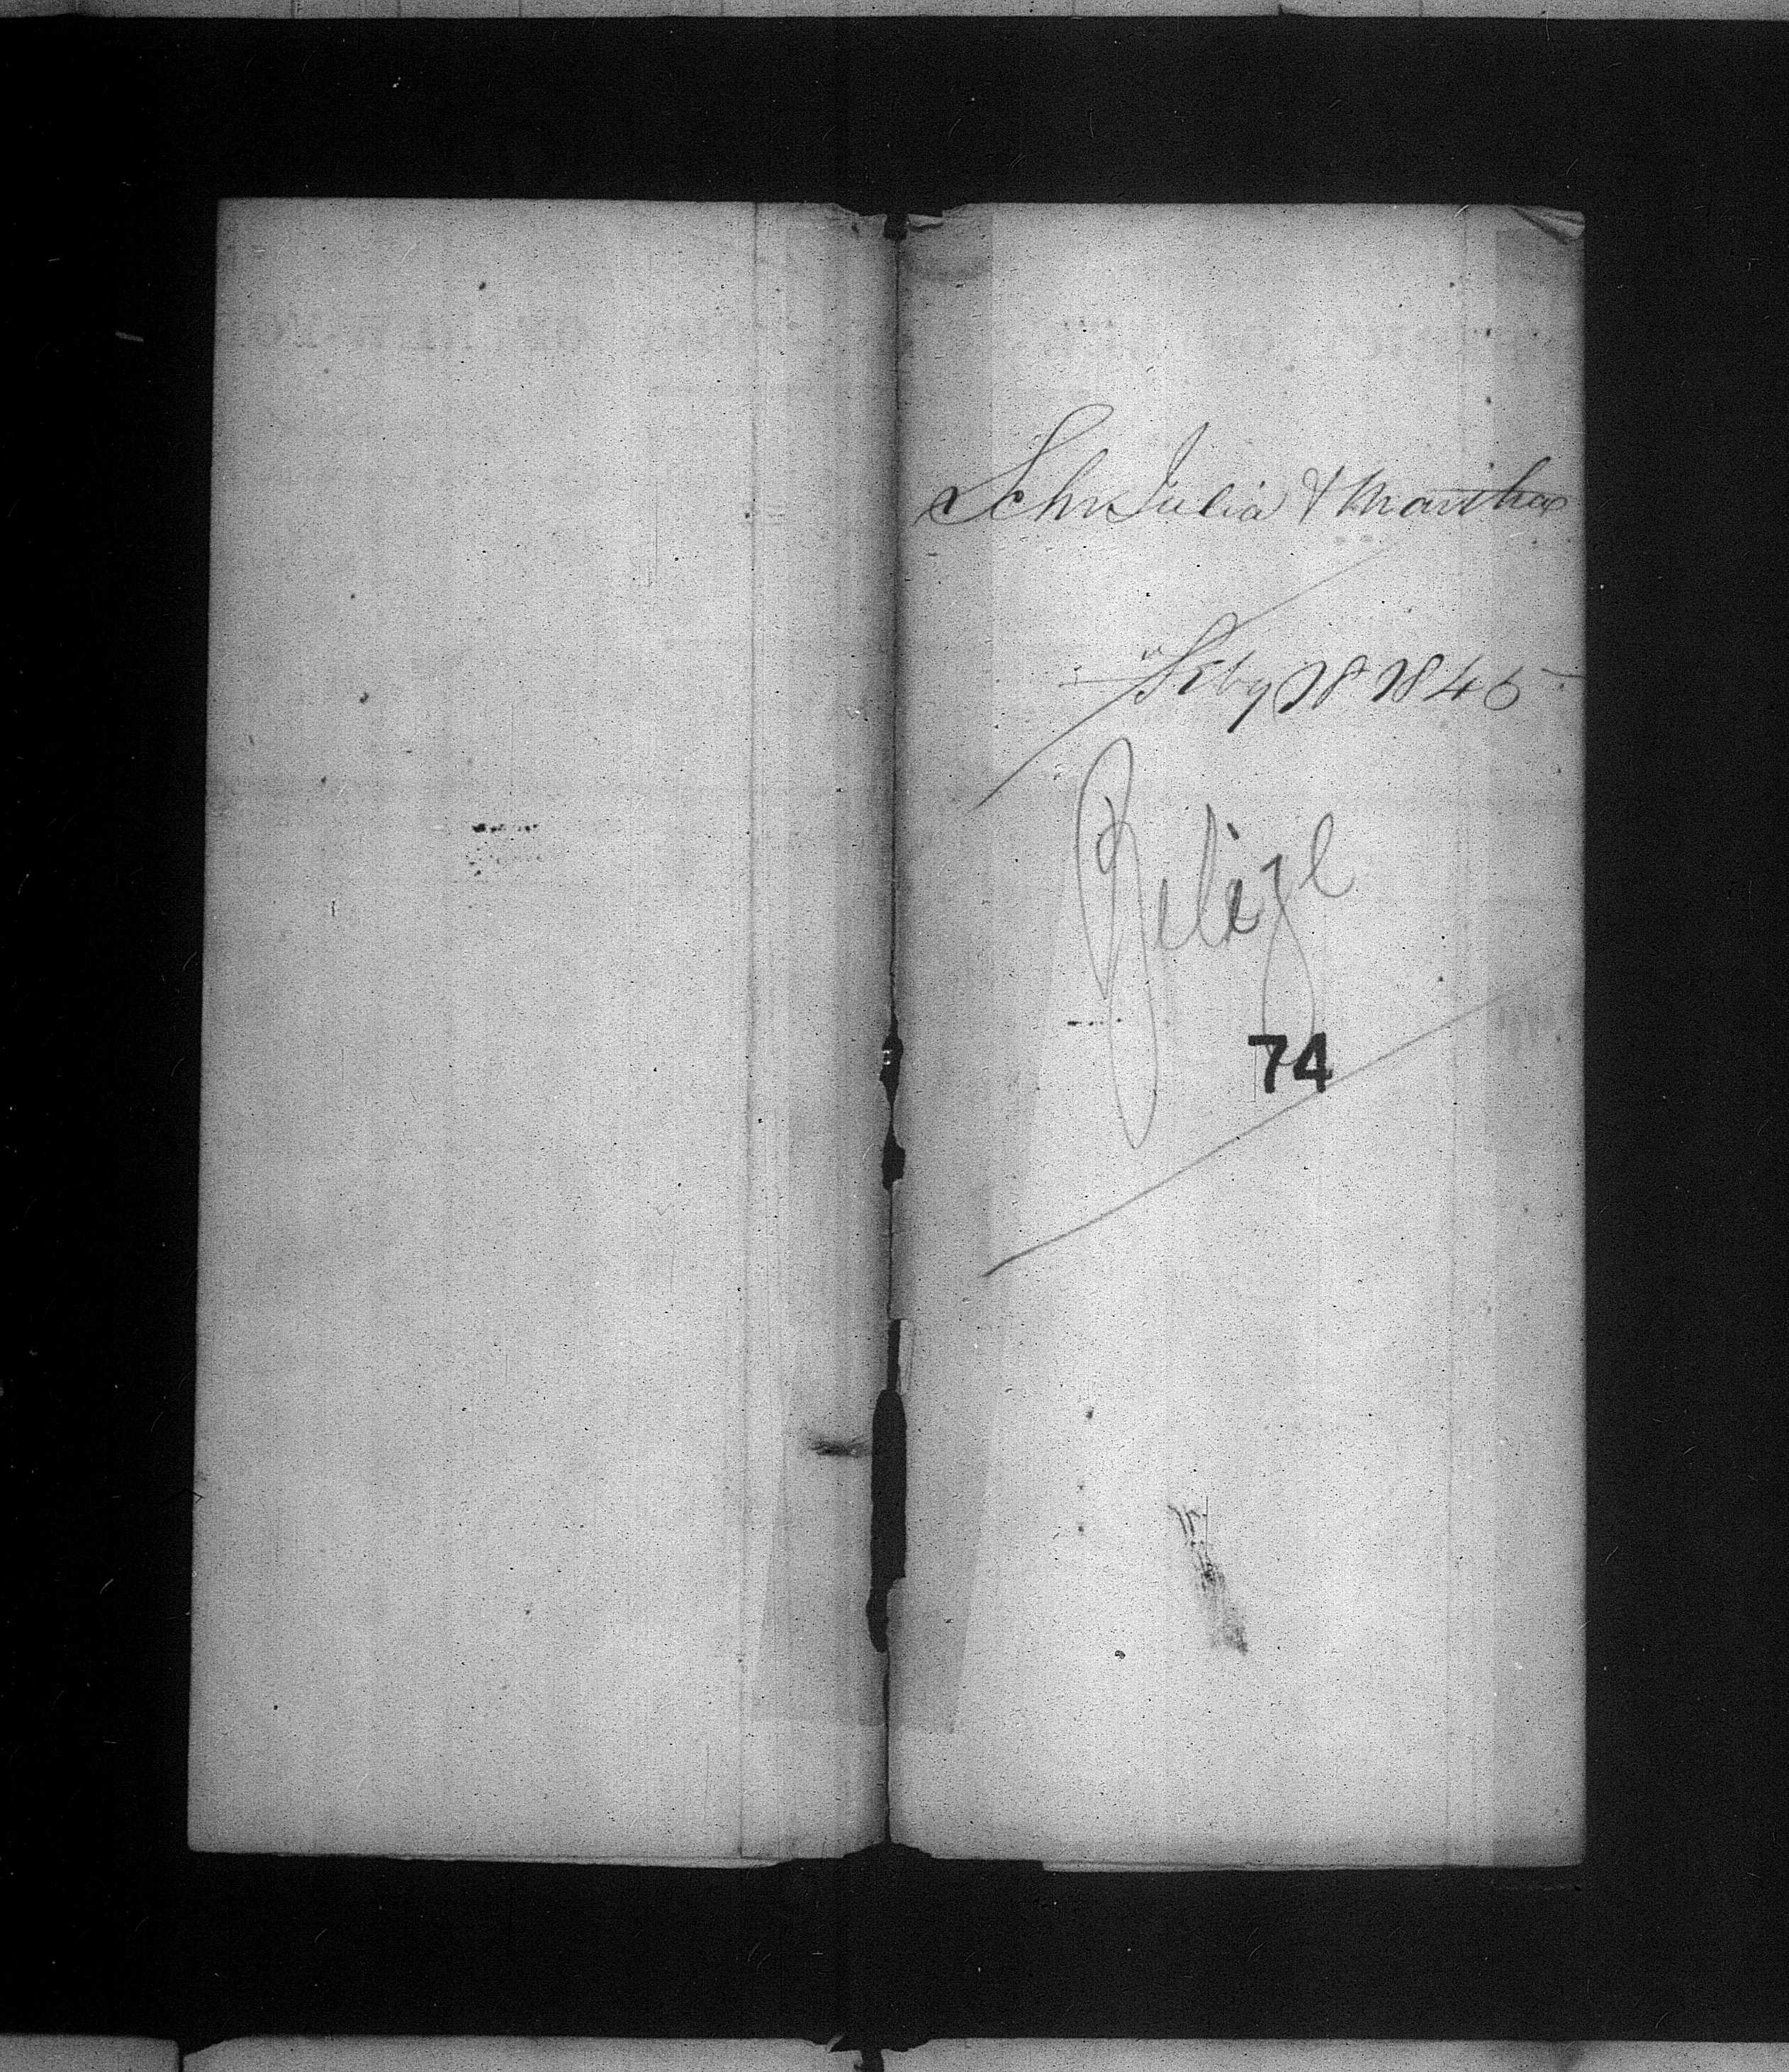 Schr Julia & Martha
18 1845
Belize
74